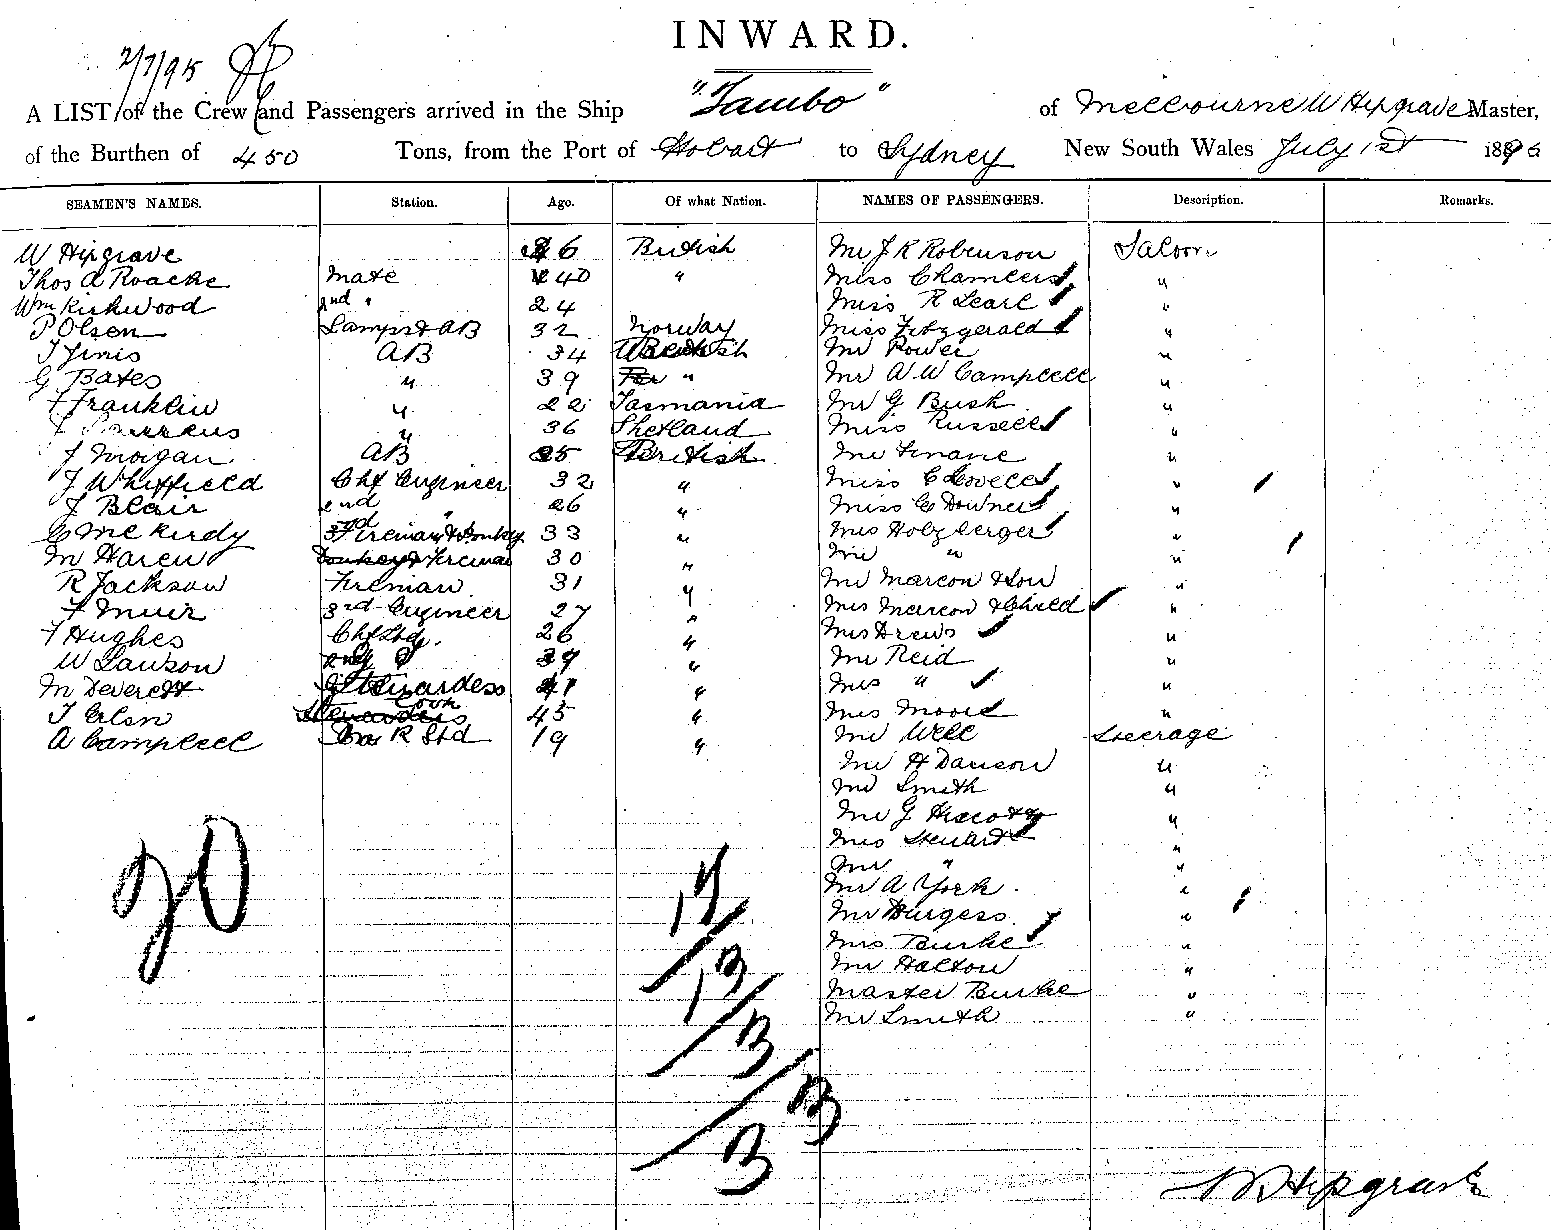 INWARD.
2/7/95
A LIST of the Crew and Passengers arrived in the Ship "Tambo" of Melbourne W Hipgrave Master,
of the Burthen of 450 Tons, from the Port of Hobart to Sydney New South Wales July 1st 1895
SEAMEN'S NAMES. Station. Age. Of what Nation. NAMES OF PASSENGERS. Description. Remarks.
W Hipgrave 36 British Mr J R Robinson Saloon
Thos A Roache Mate 40 " Miss Chambers "
Wm Kirkwood 2nd " 24 Miss R Searl "
P Olsen Lamps & AB 32 Norway Miss Fitzgerald "
T Finis AB 34 British Mr Power "
G Bates " 39 " Mr A W Campbell "
F Franklin " 22 Tasmania Mr G Bush "
" 36 Shetland Miss Russell "
J Morgan AB 25 British Mr Finane "
J Whitfield Chf Engineer 32 " Miss C Lovell "
J Blair 2nd " 26 " Miss C Downer "
C McKirdy 3rd Fireman & Donkey 33 " Mrs Holzberger "
M Haren Donkey & Fireman 30 " Mr " "
R Jackson Fireman 31 " Mr Marcon & Son "
F Muir 3rd Engineer 27 " Mrs Marcon & Child "
F Hughes Chf Std. 26 " Mrs Drews "
W Lawson 2nd 39 " Mr Reid "
M Deverett Stewardess 41 " Mrs " "
T Erlen Stewardess Cook 45 " Mrs Moore "
A Campbell R Std 19 " Mr Well Steerage
Mr H Dawson "
Mr Smith "
Mr G "
Mrs Steuart "
Mr " "
Mr A York "
Mr Burgess "
Mrs Burke "
Mr Halton "
Master Burke "
Mr Smith "
20
W Hipgrave